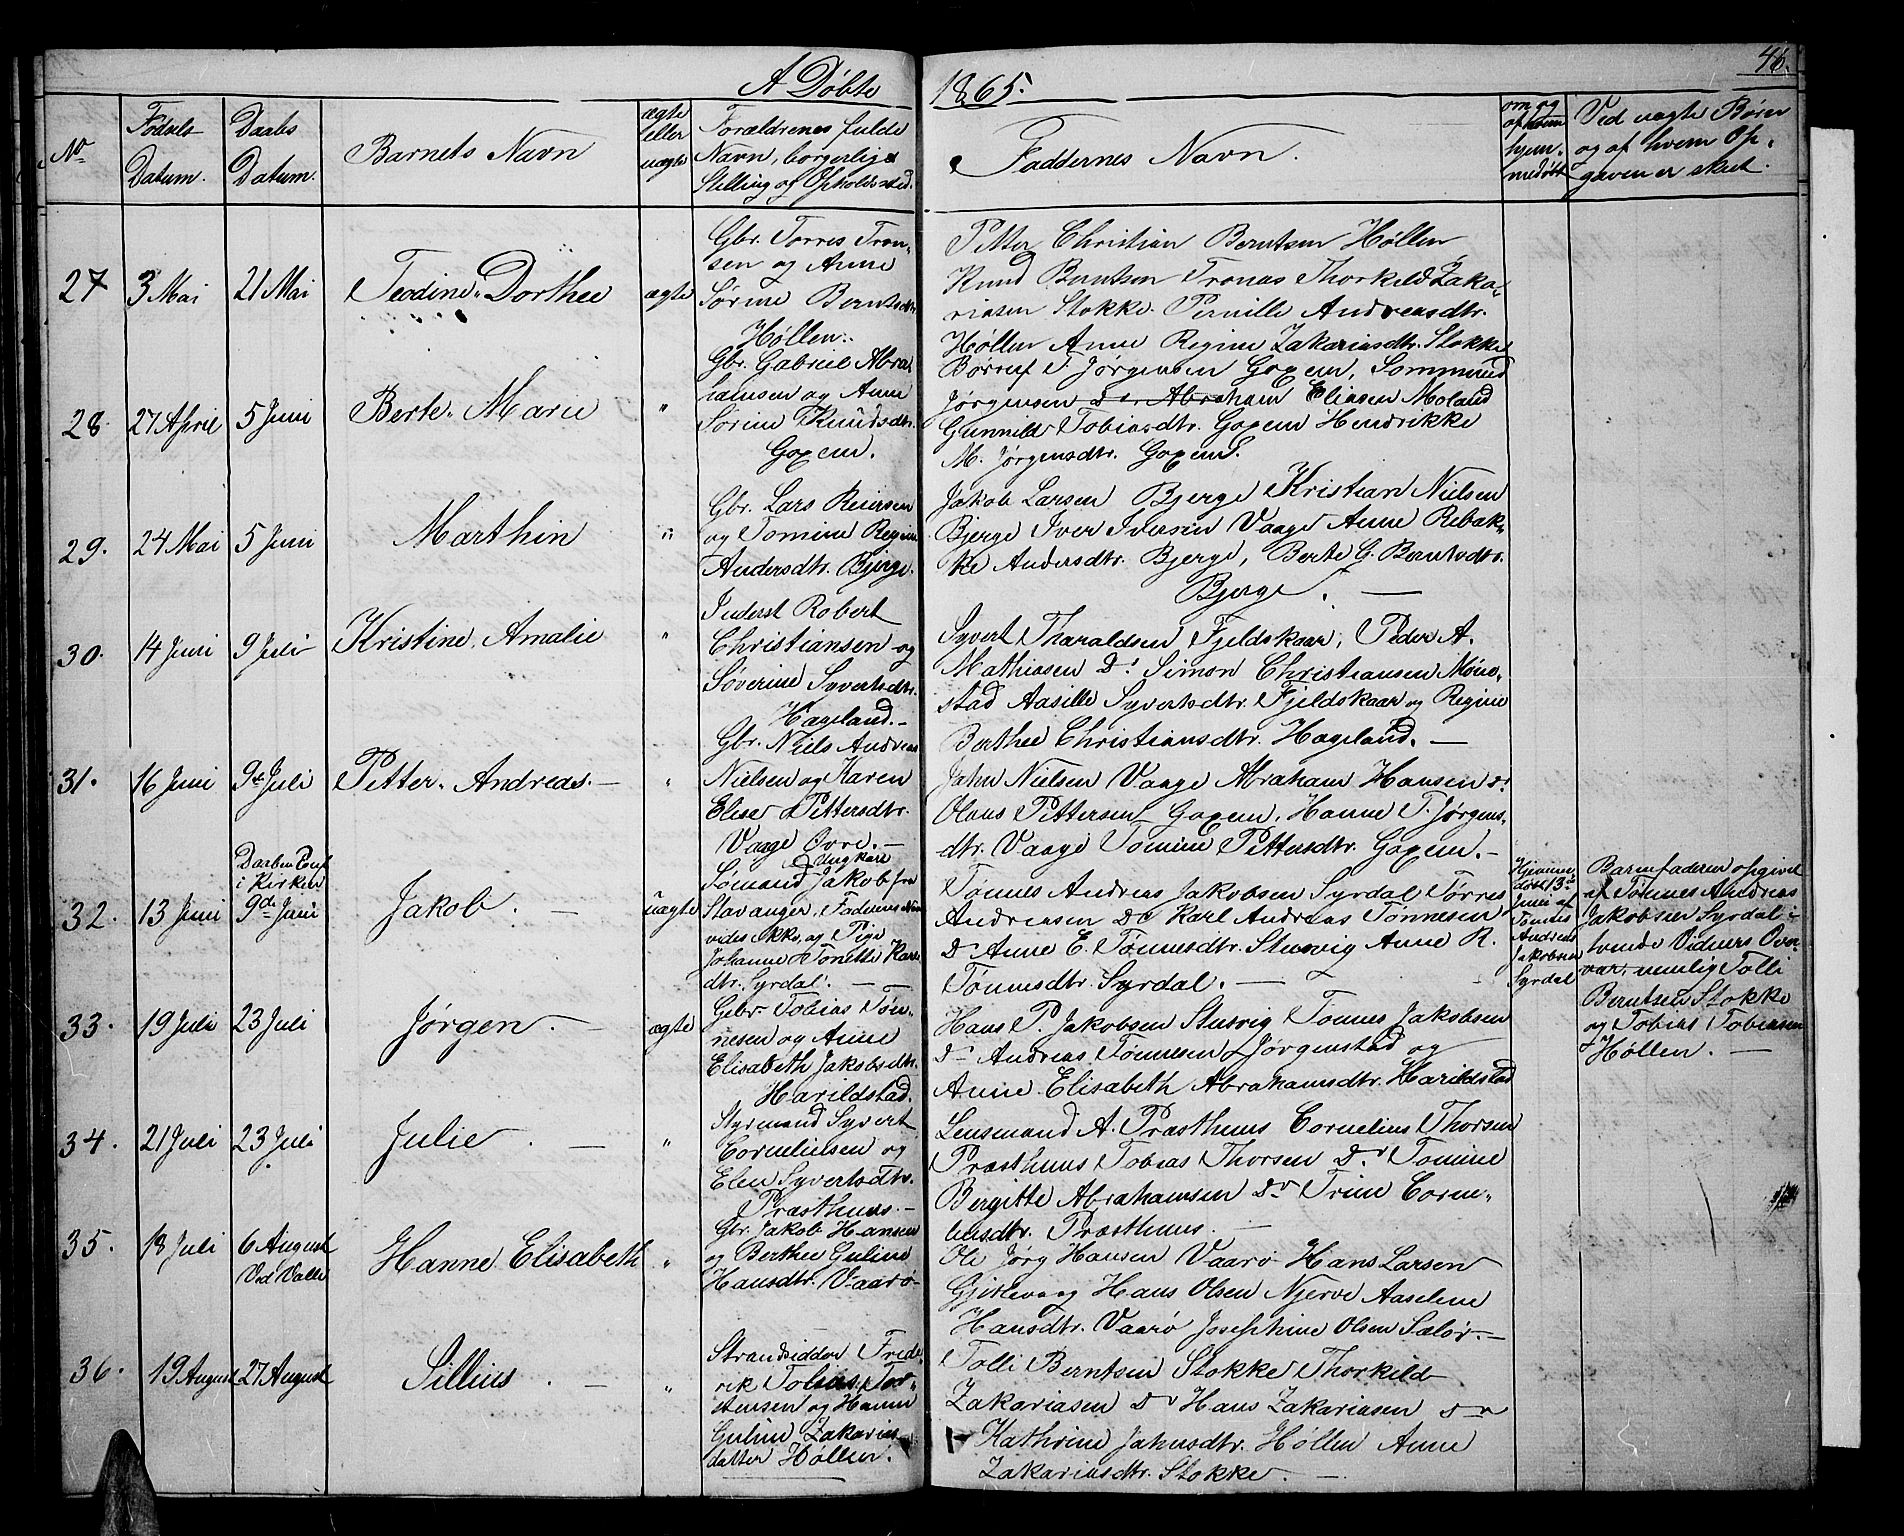 A Døbte 1865. 46.
No
Fødsels Datum.
Daabs Datum.
Barnets Navn
ægte eller uægte
Forældrenes fulde Navn, borgerlige Stilling og Opholdssted.
Faddernes Navn.
om og af hvem hjemmedøbt
Ved uægte Børn og af hvem Opgaven er skeet.
27 3 Mai 21 Mai Teodine Dorthee ægte
Gbr. Torres Tron-
sen og Anne
Sørine Berntsdtr.
Høllen.
Pitter Christian Berntsen Høllen
Knud Berntsen Tronas Thorkild Zaka-
riasen Stokke. Pernille Andreasdtr.
Høllen Anne Regine Zakariasdtr. Stokke
28. 27 April 5 Juni Berte Marie "
Gbr. Gabriel Abra
hamsen og Anne
Sørine Knudsdtr.
Goxem.
T. Jørgensen Goxem, Sommund
Jørgensen Dr Abraham Eliasen Moland
Gunnild Tobiasdtr. Goxem Hendrikke
M. Jørgensdtr. Goxem.
29. 24 Mai 5 Juni Marthin "
Gbr. Lars Reiersen
og Tomine Regine
Andersdtr. Bjerge.
Jakob Larsen Bjerge Kristian Nielsen
Bjerge Iver Iversen Vaage Anne Rebak-
ke Andersdtr. Bjerge, Berte G. Berntsdtr.
Bjerge. —
30. 14 Juni 9 Juli Kristine Amalie "
Inderst Robert
Christiansen og
Søverine Syvertsdtr.
Hageland. -
Syvert Tharaldsen Fjeldskaar, Peder A.
Mathiasen Dr Simon Christiansen
stad Aasille Syvertsdtr. Fjeldskaar og Regine
Berthee Christiansdtr. Hageland. —
31. 16 Juni 9de Juli Pitter Andreas. — "
Gbr. Niels Andreas
Nielsen og Karen
Elise Pittersdtr.
Vaage Øvre. -
Jahn Nielsen Vaage Abraham Hansen Dr
Olaus Pittersen Goxem, Hanne T. Jørgens-
dtr. Vaage Tomine Pittersdtr. Goxem. -
32. 13 Juni
Daaben Conf
i Kirken
9de Juni
Jakob. — uægte
Ungkarl
Sømand Jakob fra
Stavanger, Faderens Navn
vides ikke, og Pige
Johanne Tonette
dtr. Syrdal. —
Tønnes Andreas Jakobsen Syrdal Tørres
Andreasen Do Karl Andreas Tønnesen
Do Anne E. Tønnesdtr. Stusvig Anne R.
Tønnesdtr. Syrdal. —
Hjemme
døbt 13de
Juni af
Tønnes
Andreas
Jakobsen
Syrdal
Barnefaderen opgivet
af Tønnes Andreas
Jakobsen Syrdal i
tvende Vidners Over-
vær, nemlig Tolli
Berntsen Stokke
og Tobias Tobiasen
Høllen. —
33. 19 Juli 23 Juli Jørgen. — ægte
Gbr. Tobias Tøn-
nesen og Anne
Elisabeth Jakobsdtr.
Harildstad.
Hans P. Jakobsen Stusvig Tønnes Jakobsen
Do Andreas Tønnesen Jørgenstad og
Anne Elisabeth Abrahamsdtr. Harildstad
34. 21 Juli 23 Juli Julie. — "
Styrmand Syvert
Corneliusen og
Elen Syvertsdtr.
Præsthuus. -
Lensmand A. Præsthuus Cornelius Thorsen
Præsthuus Tobias Thorsen Dr Tomine
Bergitte Abrahamsen Do Trine Corne-
liusdtr. Præsthuus. —
35. 18 Juli 6 August
Ved Valle
Hanne Elisabeth "
Gbr. Jakob Hansen
og Berthe Guline
Hansdtr. Vaarø
Ole Jørg Hansen Vaarø Hans Larsen
Gjislevaag Hans Olsen Njerve Aaselene
Hansdtr. Vaarø Josephine Olsen Sælør. -
36. 19 August 27 August Sillius. — "
Strandsidder Frede-
rik Tobias Tor-
stensen og Hanne
Guline Zakarias
datter Høllen.
Tolli Berntsen Stokke Thorkild
Zakariasen Dr Hans Zakariasen Do
Kathrine Jahnsdtr. Høllen Anne
Zakariasdtr. Stokke. —